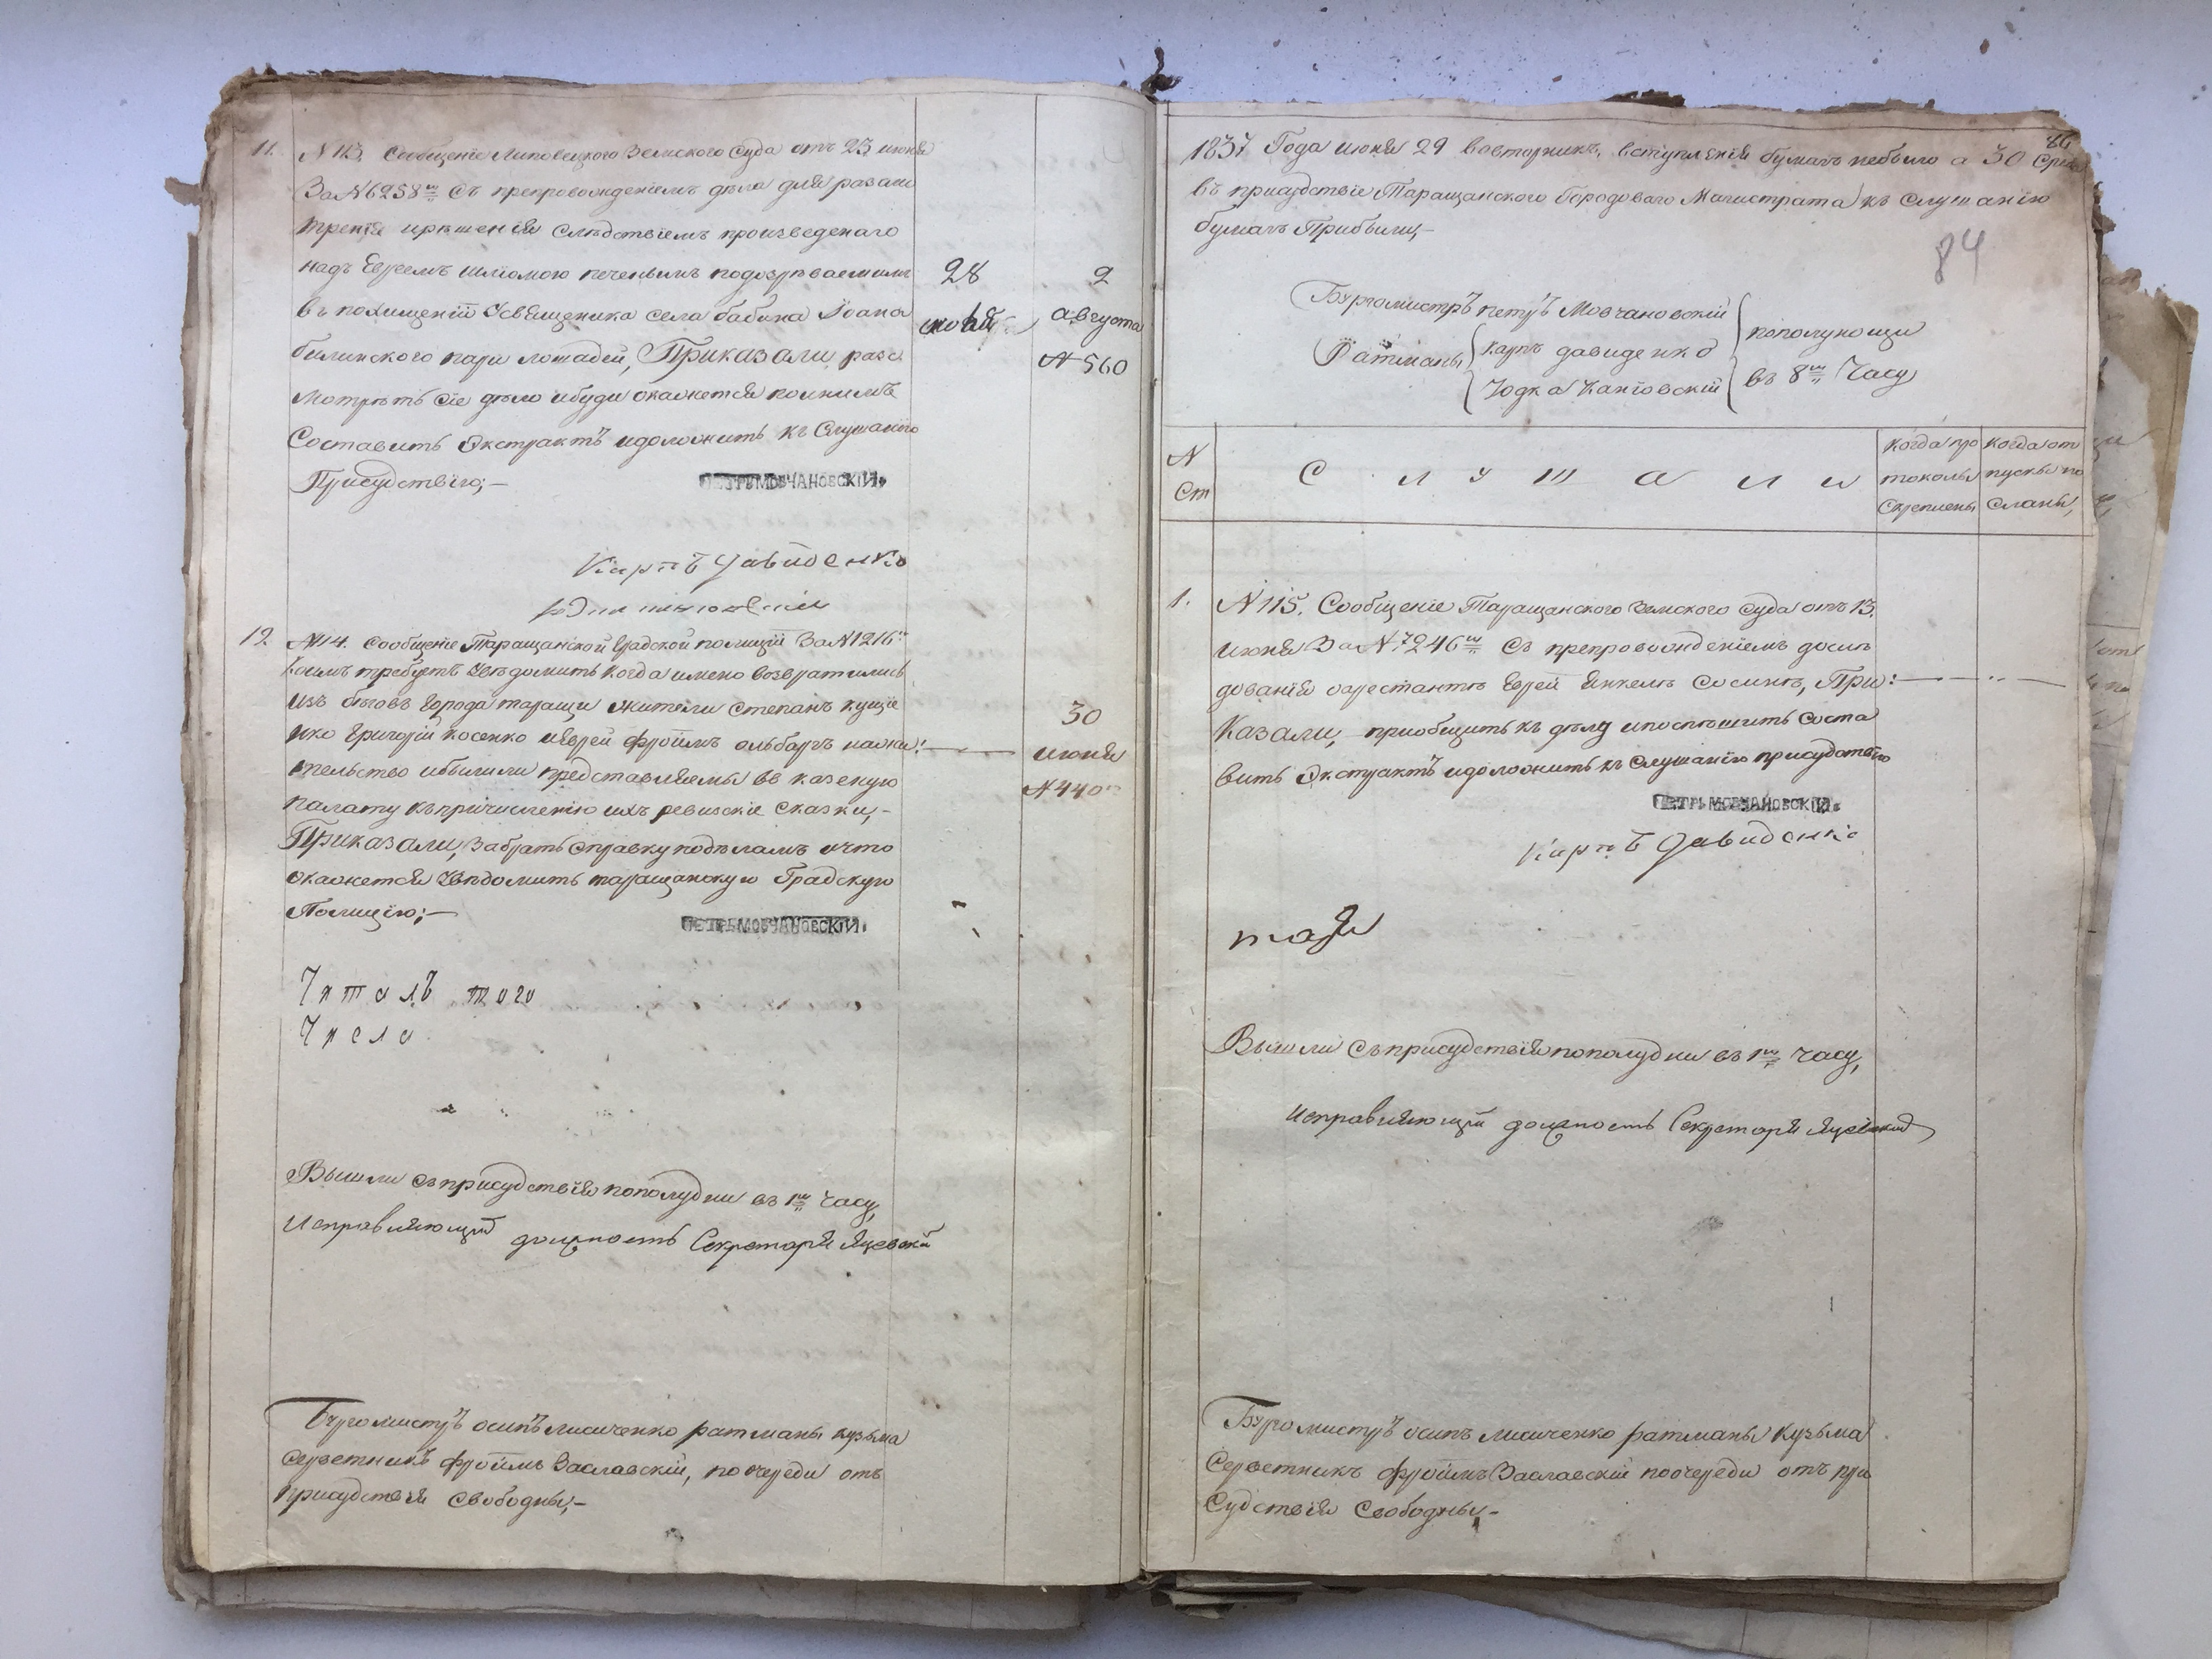 11. N 113. Сообщеніе Липовецкого Земского Суда отъ 23 июня
За N 6258м съ препровожденіемъ дѣла для разсмо
тренія ирѣшенія слѣдствіемъ произведенаго
надъ Евреемъ Шліомою печенымъ подозрѣваемимъ
въ похищеніи Усвященика села бабина Іоана
билинского пари лошадей, Приказали разс
мотрѣть сіе дѣло ибуди окажется полнимъ
Составить Экстрактъ идоложить къ Слушанію
Присудствію;-
28
июня
2
августа
N 560
ПЕТРЪ МОВЧАНОВСКІЙ
Карпъ Давиденко
12. N 114. Сообщеніе Таращанской Градской полиціи За N 1216м
Коимъ требуетъ Увѣдомить когда имено возвратились
изъ бѣговъ Города таращи жители степанъ кущіе
нко Григорій косенко иеврей фроимъ ольбаргъ нажи:
тельство ибылили представляемы въ казеную
палату къпричисленію ихъ ревизскіе сказки,-
Приказали, Забрать справку подѣламъ ичто
окажется Увѣдомить таращанскую Градскую
Полицію;-
30
июня
N 440
ПЕТРЪ МОВЧАНОВСКІЙ
Читалъ того
Числа
Вышли съприсудствія пополудни въ 1м часу,
Исправляющій должность Секретаря Яцевскій
Бургомистръ осипъ лисиченко ратманы кузьма
Серветникъ фроимъ Заславскій, поочереди отъ
присудствія свободны;-
86
1837 Года июня 29 вовторникъ, вступленія бумагъ небыло а 30 Сре
въ присудствіе Таращанского Городоваго Магистрата къ Слушанію
бумагъ Прибыли,-
84
Бургомистръ петръ Мовчановскій
Ратманы карпъ давиденко
Іодка Каніовскій
пополунощи
въ 8м Часу
N
Ст
С л у ш а л и
Когда про
токолы
Скреплены
когда от
пуски по
сланы,
1. N 115. Сообщеніе Таращанского Земского Суда отъ 13.
июня За N. 7246м Съ препровожденіемъ дослѣ
дованія оарестантѣ Еврей Янкелѣ Сосинѣ, При:
Казали, приобщить къ дѣлу ипоспѣшить Соста
вить Экстрактъ идоложить къ Слушанію присудствію
ПЕТРЪ МОВЧАНОВСКІЙ
Карпъ Давиденко
Вышли съприсудствія пополудни въ 1м часу,
Исправляющій должность Секретаря Яцевскій
Бургомистръ осипъ лисиченко ратманы кузьма
Серветникъ фроимъ Заславскій поочереди отъ при
судствія Свободны,-